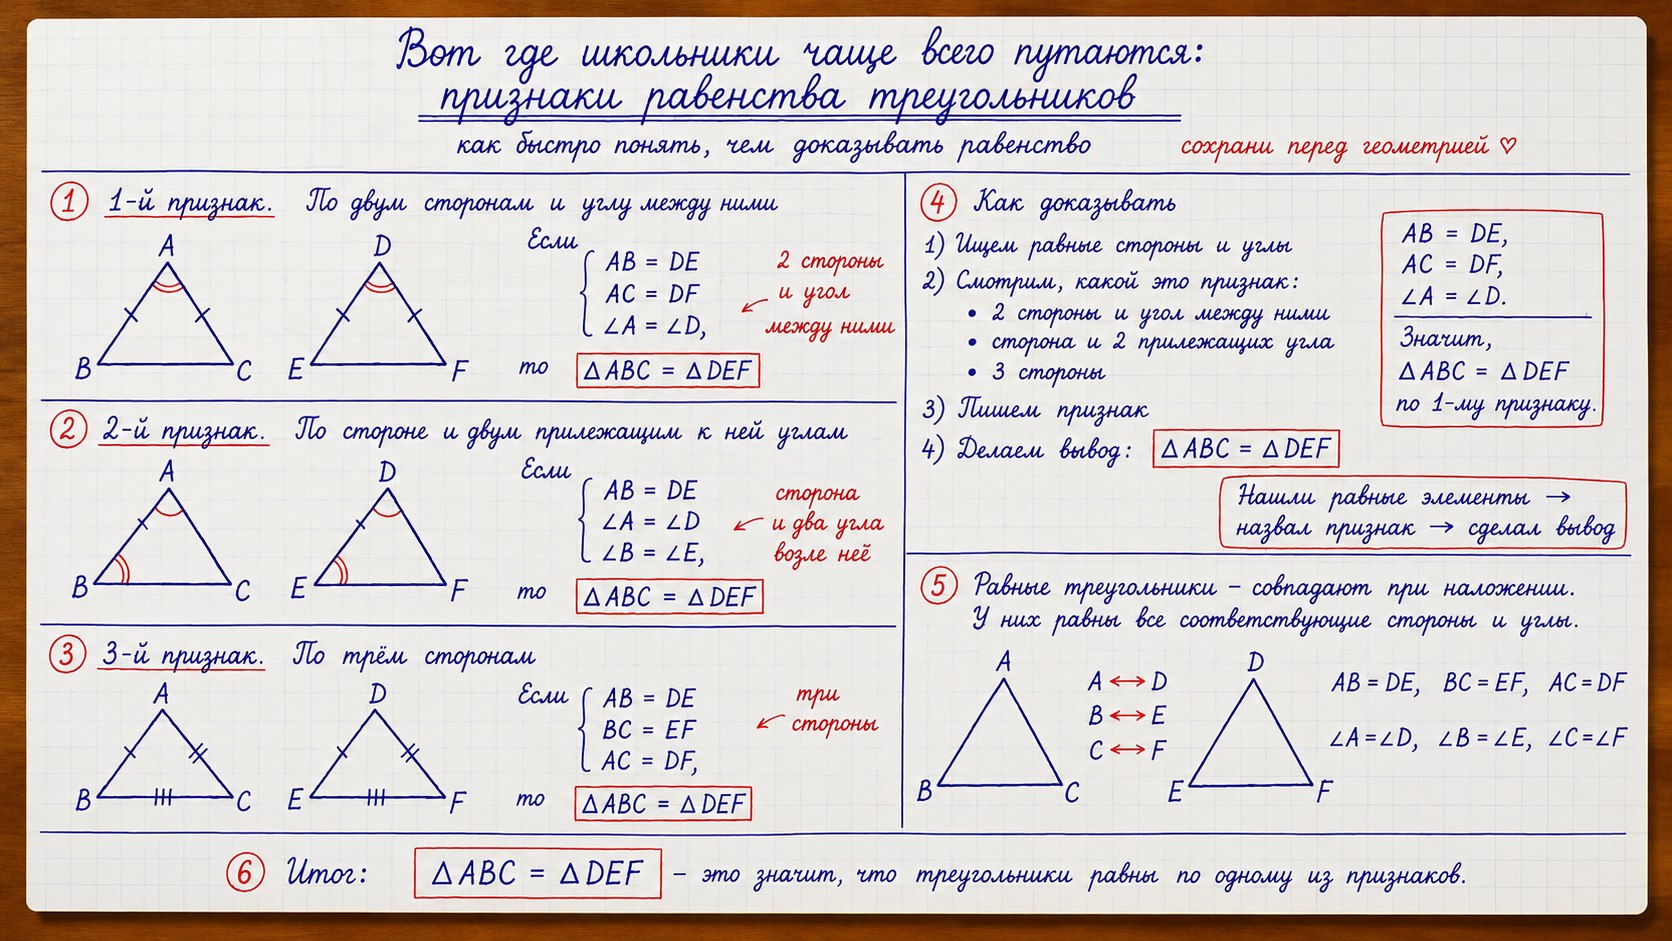 Вот где школьники чаще всего путаются:
признаки равенства треугольников
как быстро понять, чем доказывать равенство
сохрани перед геометрией ♡
1 1-й признак. По двум сторонам и углу между ними
A
D
B
C
E
F
Если
AB = DE
AC = DF
∠A = ∠D,
2 стороны
и угол
между ними
то △ABC = △DEF
2 2-й признак. По стороне и двум прилежащим к ней углам
A
D
B
C
E
F
Если
AB = DE
∠A = ∠D
∠B = ∠E,
сторона
и два угла
возле неё
то △ABC = △DEF
3 3-й признак. По трём сторонам
A
D
B
C
E
F
Если
AB = DE
BC = EF
AC = DF,
три
стороны
то △ABC = △DEF
4 Как доказывать
1) Ищем равные стороны и углы
2) Смотрим, какой это признак:
• 2 стороны и угол между ними
• сторона и 2 прилежащих угла
• 3 стороны
3) Пишем признак
4) Делаем вывод: △ABC = △DEF
AB = DE,
AC = DF,
∠A = ∠D.
Значит,
△ABC = △DEF
по 1-му признаку.
Нашли равные элементы →
назвал признак → сделал вывод
5 Равные треугольники – совпадают при наложении.
У них равны все соответствующие стороны и углы.
A
B
C
A ↔ D
B ↔ E
C ↔ F
D
E
F
AB = DE, BC = EF, AC = DF
∠A = ∠D, ∠B = ∠E, ∠C = ∠F
6 Итог: △ABC = △DEF – это значит, что треугольники равны по одному из признаков.